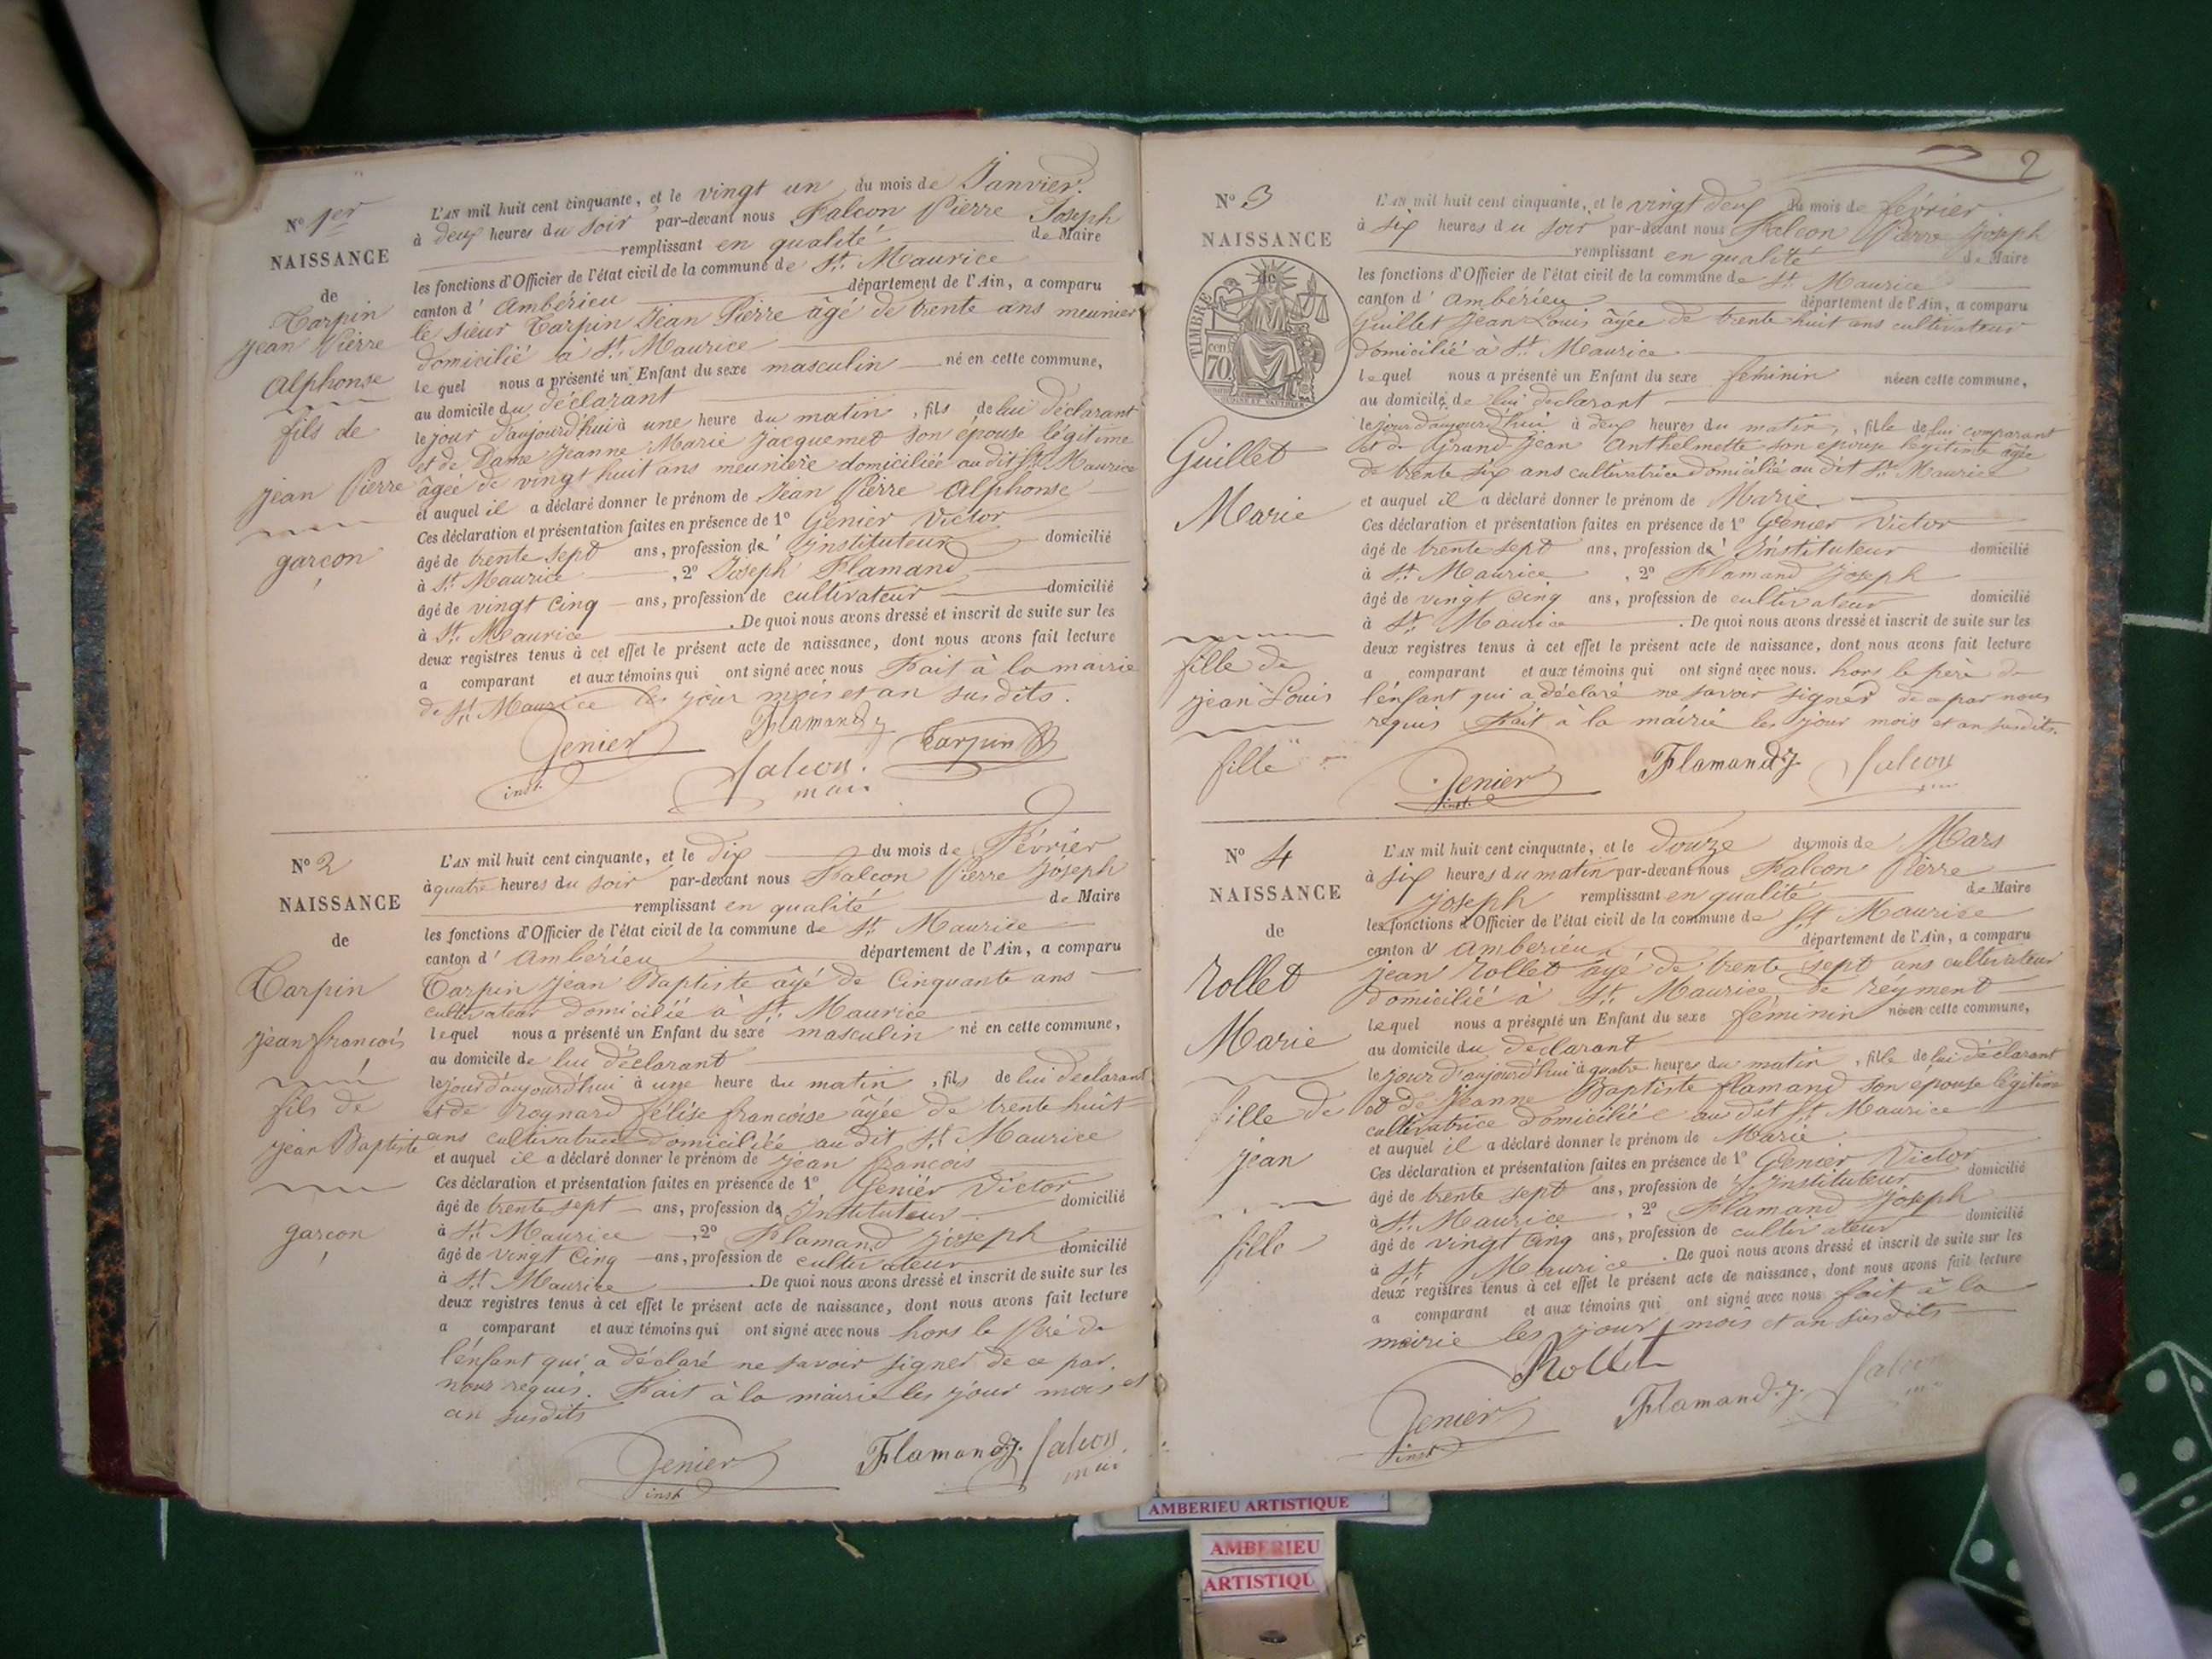 N° 1er
NAISSANCE
de
Tarpin
Jean Pierre
Alphonse
fils de
Jean Pierre
garçon
L'AN mil huit cent cinquante, et le vingt un du mois de Janvier.
à deux heures du soir par-devant nous Falcon Pierre Joseph
remplissant en qualité de Maire
les fonctions d'Officier de l'état civil de la commune de St. Maurice
canton d' Ambérieu département de l'Ain, a comparu
le sieur Tarpin Jean Pierre âgé de trente ans meunier
domicilié à St. Maurice
lequel nous a présenté un Enfant du sexe masculin né en cette commune,
au domicile du déclarant
le jour d'aujourd'hui à une heure du matin, fils de lui déclarant
et de Dame Jeanne Marie Jacquemet son épouse légitime
âgée de vingt huit ans meunière domiciliée au dit St. Maurice
et auquel il a déclaré donner le prénom de Jean Pierre Alphonse
Ces déclaration et présentation faites en présence de 1° Genier Victor
âgé de trente sept ans, profession d' Instituteur domicilié
à St. Maurice, 2° Joseph Flamand
âgé de vingt cinq ans, profession de cultivateur domicilié
à St. Maurice. De quoi nous avons dressé et inscrit de suite sur les
deux registres tenus à cet effet le présent acte de naissance, dont nous avons fait lecture
a comparant et aux témoins qui ont signé avec nous Fait à la mairie
de St. Maurice les jour mois et an susdits.
Genier Flamand j Tarpin
inst. Falcon.
mair
N° 2
NAISSANCE
de
Tarpin
Jean francois
fils de
Jean Baptiste
garcon
L'AN mil huit cent cinquante, et le dix du mois de Février
à quatre heures du soir par-devant nous Falcon Pierre Joseph
remplissant en qualité de Maire
les fonctions d'Officier de l'état civil de la commune de St. Maurice
canton d' Ambérieu département de l'Ain, a comparu
Tarpin Jean Baptiste âgé de Cinquante ans
cultivateur domicilié à St. Maurice
lequel nous a présenté un Enfant du sexe masculin né en cette commune,
au domicile de lui déclarant
le jour d'aujourd'hui à une heure du matin, fils de lui déclarant
et de rognard félise francoise âgée de trente huit
ans cultivatrice domiciliée au dit St. Maurice
et auquel il a déclaré donner le prénom de Jean francois
Ces déclaration et présentation faites en présence de 1° Genier Victor
âgé de trente sept ans, profession d' Instituteur domicilié
à St. Maurice, 2° Flamand Joseph
âgé de vingt cinq ans, profession de cultivateur domicilié
à St. Maurice. De quoi nous avons dressé et inscrit de suite sur les
deux registres tenus à cet effet le présent acte de naissance, dont nous avons fait lecture
a comparant et aux témoins qui ont signé avec nous hors le Pére de
l'enfant qui a déclaré ne savoir signer de ce par.
nous requis. Fait à la mairie les jour mois et
an susdits
Genier Flamand j. Falcon
inst mair
2
N° 3
NAISSANCE
de
TIMBRE
cen.
70
Guillet
Marie
fille de
Jean Louis
fille
L'AN mil huit cent cinquante, et le vingt deux du mois de février
à six heures du soir par-devant nous Falcon Pierre Joseph
remplissant en qualité de Maire
les fonctions d'Officier de l'état civil de la commune de St. Maurice
canton d' Ambérieu département de l'Ain, a comparu
Guillet Jean Louis âgée de trente huit ans cultivateur
domicilié à St. Maurice
lequel nous a présenté un Enfant du sexe féminin née en cette commune,
au domicile de lui declarant
le jour d'aujourd'hui à deux heures du matin, fille de lui comparant
et de Grand Jean Anthelmette son épouse légitime âgée
de trente six ans cultivatrice domicilié au dit St. Maurice
et auquel il a déclaré donner le prénom de Marie
Ces déclaration et présentation faites en présence de 1° Genier Victor
âgé de trente sept ans, profession d' Instituteur domicilié
à St. Maurice, 2° Flamand Joseph
âgé de vingt cinq ans, profession de cultivateur domicilié
à St. Maurice. De quoi nous avons dressé et inscrit de suite sur les
deux registres tenus à cet effet le présent acte de naissance, dont nous avons fait lecture
a comparant et aux témoins qui ont signé avec nous. hors le père de
l'enfant qui a déclaré ne savoir signer de ce par nous
requis Fait à la mairie les jour mois et an susdits.
Genier Flamand j. Falcon
inst.
N° 4
NAISSANCE
de
Rollet
Marie
fille de
Jean
fille
L'AN mil huit cent cinquante, et le douze du mois de Mars
à six heures du matin par-devant nous Falcon Pierre
Joseph remplissant en qualité de Maire
les fonctions d'Officier de l'état civil de la commune de St Maurice
canton d' Amberieu département de l'Ain, a comparu
Jean Rollet âgé de trente sept ans cultivateur
domicilié à St. Maurice de reyment
lequel nous a présenté un Enfant du sexe féminin née en cette commune,
au domicile du déclarant
le jour d'aujourd'hui à quatre heures du matin, fille de lui déclarant
et de Jeanne Baptiste flamand son épouse légitime
cultivatrice domiciliée au dit St. Maurice
et auquel il a déclaré donner le prénom de Marie
Ces déclaration et présentation faites en présence de 1° Genier Victor
âgé de trente sept ans, profession d' Instituteur domicilié
à St. Maurice, 2° Flamand Joseph
âgé de vingt cinq ans, profession de cultivateur domicilié
à St. Maurice. De quoi nous avons dressé et inscrit de suite sur les
deux registres tenus à cet effet le présent acte de naissance, dont nous avons fait lecture
a comparant et aux témoins qui ont signé avec nous fait à la
mairie les jour mois et an susdits
Rollet
Genier Flamand. j. Falcon
inst
AMBERIEU ARTISTIQUE
AMBERIEU
ARTISTIQU